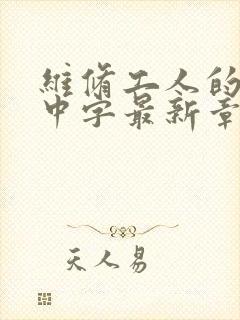 維脩工人的
中字最新章
天人易